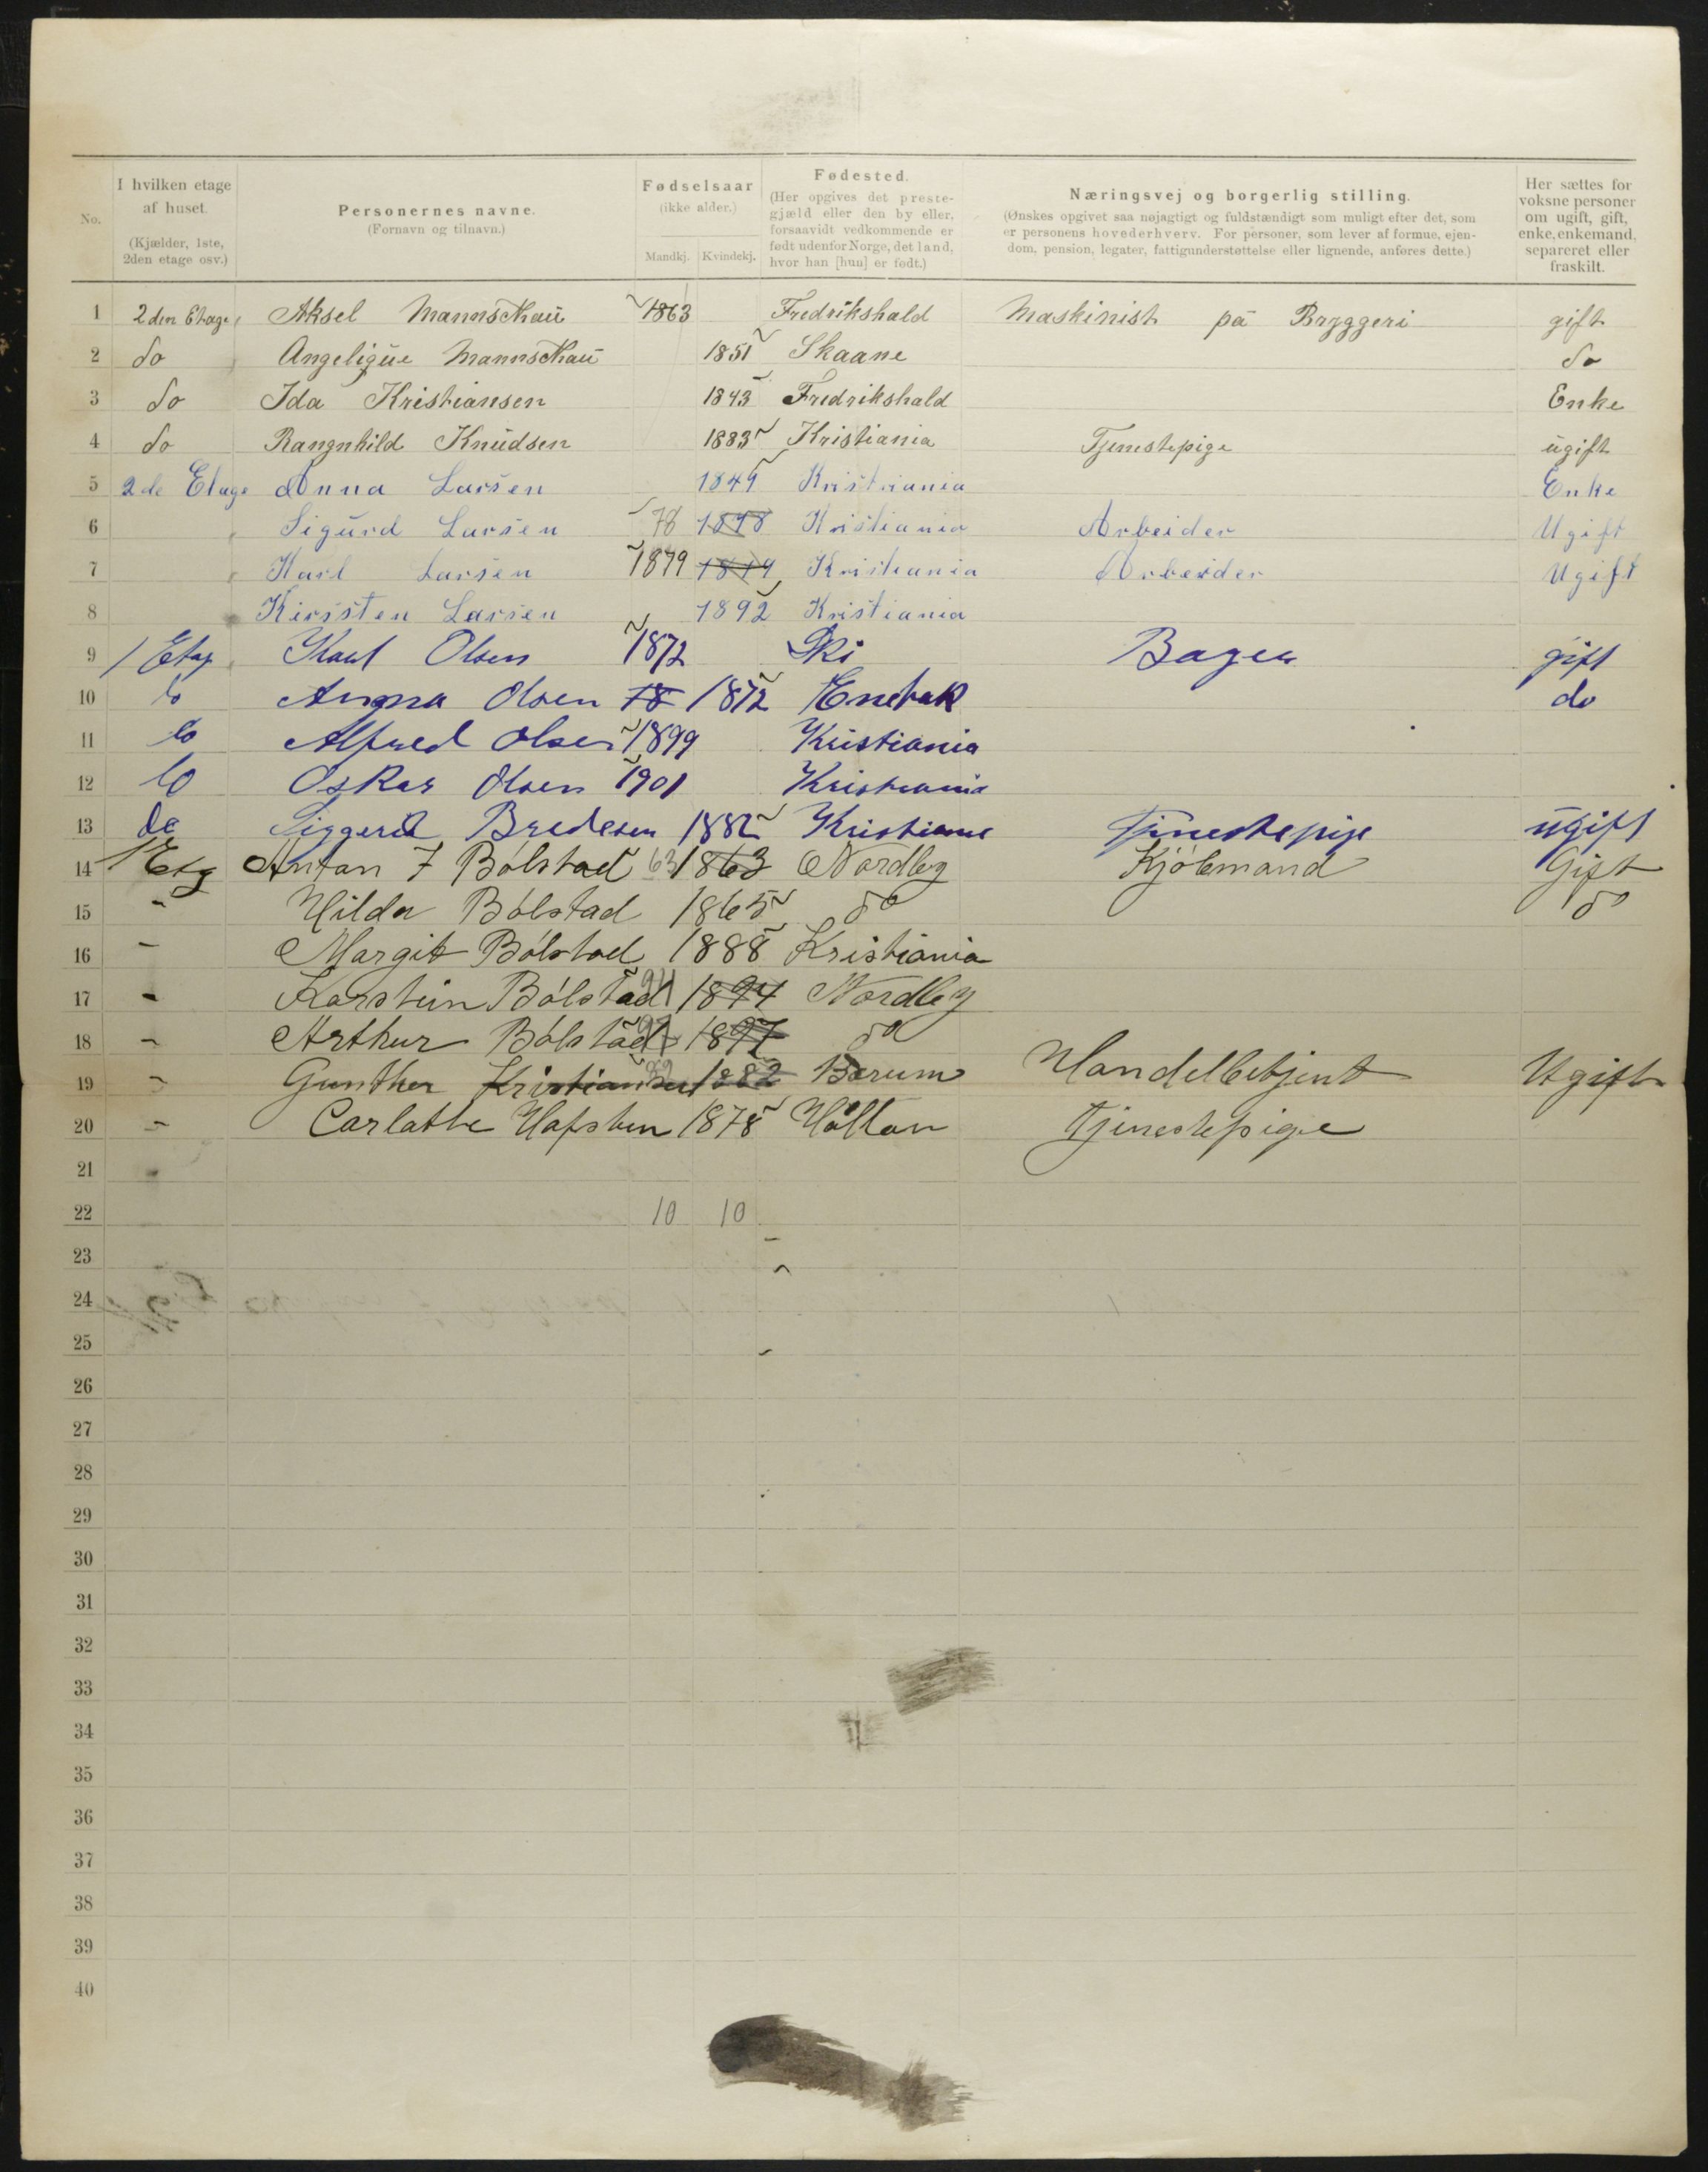 No.
I hvilken etage
af huset.
(Kjælder, 1ste,
2den etage osv.)
Personernes navne.
(Fornavn og tilnavn.)
Fødselsaar
(ikke alder.)
Mandkj. Kvindekj.
Fødested.
(Her opgives det preste-
gjæld eller den by eller,
forsaavidt vedkommende er
født udenfor Norge, det land,
hvor han [hun] er født.)
Næringsvej og borgerlig stilling.
(Ønskes opgivet saa nøjagtigt og fuldstændigt som muligt efter det, som
er personens hovederhverv. For personer, som lever af formue, ejen-
dom, pension, legater, fattigunderstøttelse eller lignende, anføres dette.)
Her sættes for
voksne personer
om ugift, gift,
enke, enkemand,
separeret eller
fraskilt.
1 2den Etage Aksel Mannskau 1863 Fredrikshald Maskinist på Bryggeri gift
2 do Angeligue Mannskau 1851 Skaane do
3 do Ida Kristiansen 1843 Fredrikshald Enke
4 do Rangnhild Knudsen 1883 Kristiania Tjenestepige ugift
5 2de Etage Anna Larsen 1849 Kristriania Enke
6 Sigurd Larsen 78 1878 Kristiania Arbeider Ugift
7 Karl Larsen 1879 1879 Kristiania Arbeider Ugift
8 Kirsten Larsen 1892 Kristiania
9 1 Etag Karl Olsen 1872 Ski Bager gift
10 do Anna Olsen 18 1872 Enebak do
11 do Alfred Olsen 1899 Kristiania
12 do Oskar Olsen 1901 Kristiania
13 do Siggerid Bredesen 1882 Kristiania Tjenestepige ugift
14 1 Etg Anton F Bólstad 63 1863 Nordby Kjóbmand Gift
15 " Hilda Bólstad 1865 do do
16 - Margit Bólstad 1888 Kristiania
17 - Karstein Bólstad 94 1894 Nordby
18 - Arthur Bólstad 97 1897 do
19 - Gunther Kristiansen 82 1882 Bærum Handelbetjent Ugift
20 - Carlathe Hafsten 1878 Høltan Tjenestepige
21
22 10 10
23
24
25
26
27
28
29
30
31
32
33
34
35
36
37
38
39
40